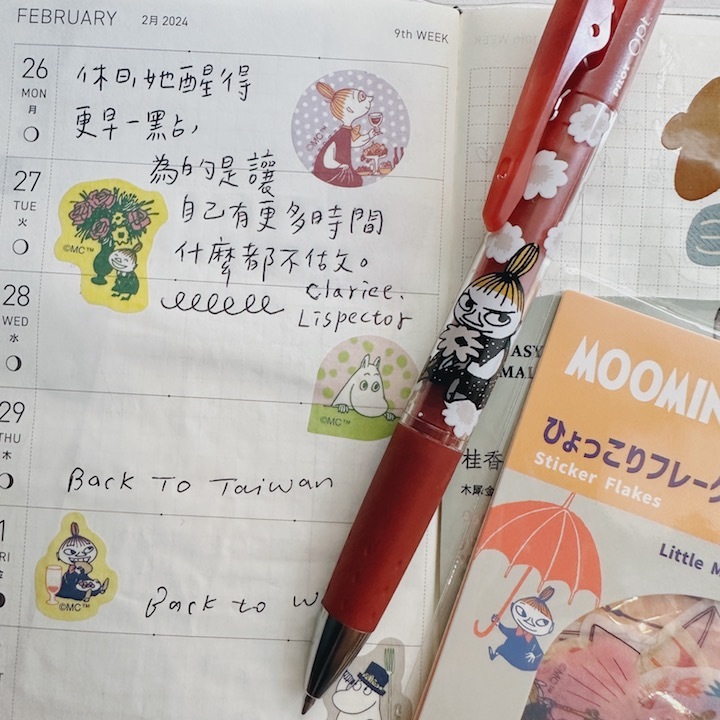 FEBRUARY 2月 2024
9th WEEK
26
MON
月
休日,她醒得
更早一點,
©MC™
27
TUE
火
為的是讓
自己有更多時間
什麼都不做。
©MC™
28
WED
水
Clarice.
Lispector
©MC™
29
THU
木
Back To Taiwan
1
FRI
金
Back to W
©MC™
©MC™
PILOT Opt.
ASY
MAL
桂香
木犀金
MOOMIN
ひょっこりフレーク
Sticker Flakes
Little M